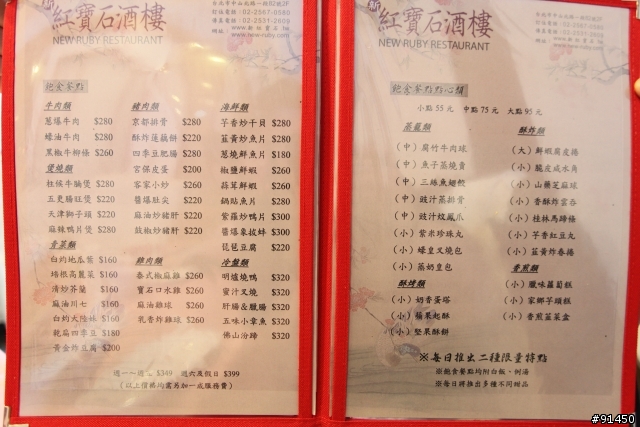 新
紅寶石酒樓
NEW RUBY RESTAURANT
台北市中山北路一段82號2F
訂位專線：02-2567-0580
傳真專線：02-2531-2609
網址：www.new-ruby.com
飽食餐點
牛肉類
蔥爆牛肉 $280
蠔油牛肉 $280
黑椒牛柳條 $260
煲燒類
柱侯牛腩煲 $280
五更腸旺煲 $220
天津獅子頭 $220
麻辣鴨片煲 $280
青菜類
白灼地瓜葉 $160
培根高麗菜 $160
清炒芥蘭 $160
麻油川七 $160
白灼大陸妹 $160
乾扁四季豆 $180
黃金炸豆腐 $200
豬肉類
京都排骨 $280
酥炸蓮藕餅 $220
四季豆肥腸 $280
宮保皮蛋 $200
客家小炒 $260
醬爆肚尖 $220
麻油炒豬肝 $220
豉椒炒豬肝 $220
雞肉類
泰式椒麻雞 $260
寶石口水雞 $260
麻油雞球 $260
乳香炸雞球 $260
海鮮類
芋香炒干貝 $280
韮黃炒魚片 $280
蔥燒鮮魚片 $180
椒鹽鮮蝦 $260
蒜茸鮮蝦 $260
鍋貼魚片 $280
紫蘿炒鴨片 $300
醬爆象拔蚌 $300
琵琶豆腐 $220
冷盤類
明爐燒鴨 $320
蜜汁叉燒 $320
肝腸＆臘腸 $320
五味小章魚 $320
佛山汾蹄 $320
週一～週五 $349 週六及假日 $399
（以上價格均需另加一成服務費）
新
紅寶石酒樓
NEW RUBY RESTAURANT
飽食餐點點心類
小點 55元 中點 75元 大點 95元
蒸籠類
（中）腐竹牛肉球
（中）魚子蒸燒賣
（中）三絲魚翅餃
（中）豉汁蒸排骨
（中）豉汁炆鳳爪
（小）紫米珍珠丸
（小）蠔皇叉燒包
（小）蒸奶皇包
酥烤類
（小）奶香蛋塔
（小）蘋果起酥
（小）堅果酥餅
酥炸類
（大）鮮蝦腐皮捲
（小）脆皮咸水角
（小）山藥芝麻球
（小）香酥炸雲吞
（小）桂林馬蹄條
（小）芋香紅豆丸
（小）韮黃炸春捲
香煎類
（小）臘味蘿蔔糕
（小）家鄉芋頭糕
（小）香煎韮菜盒
※每日推出二種限量特點
※飽食餐點均附白飯、例湯
※每日將推出多種不同甜品
#91450